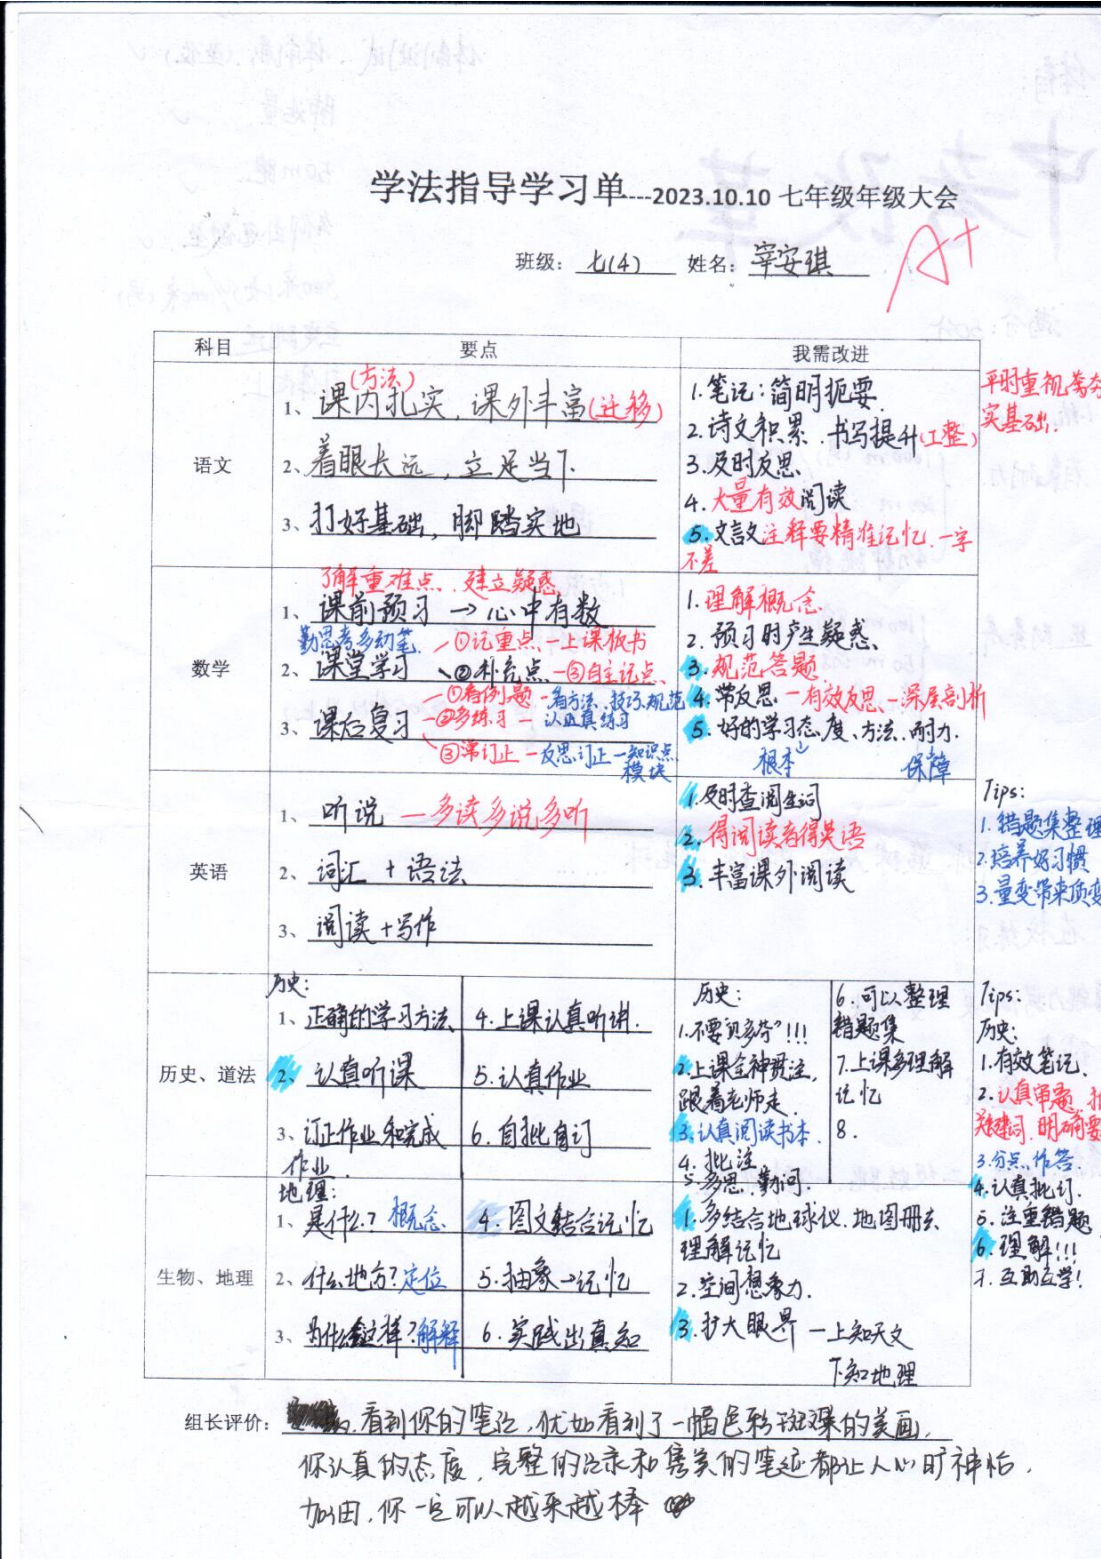 学法指导学习单---2023.10.10 七年级年级大会
班级: 七(4) 姓名: 宰安琪
A+
科目 要点 我需改进
语文
(方法)
1、课内扎实，课外丰富(迁移)
2、着眼长远，立足当下
3、打好基础，脚踏实地
1.笔记:简明扼要.
2.诗文积累.书写提升(工整)
3.及时反思
4.大量有效阅读
5.文言文注释要精准记忆.一字
不差
平时重视夯
实基础.
数学
了解重难点、建立疑惑
1、课前预习 → 心中有数
勤思考多动笔
①记重点、上课板书
2、课堂学习 ②补充点 —③自主记点、
①看例题 — 看方法、技巧、规范
3、课后复习 —②多练习 — 认真练习
③常订正 — 反思订正 — 知识点
模块
1.理解概念
2.预习时产生疑惑、
3.规范答题
4.常反思 — 有效反思、— 深层剖析
5.好的学习态度、方法.耐力.
根本 保障
英语
1、听说 — 多读多说多听
2、词汇 + 语法
3、阅读 + 写作
1.及时查阅生词
2.得阅读者得英语
3.丰富课外阅读
Tips:
1.错题集整理
2.培养好习惯
3.量变带来质变
历史、道法
历史:
1、正确的学习方法、 4.上课认真听讲.
2、认真听课 5.认真作业
3、订正作业和完成 6.自批自订
作业.
历史:
1.不要"贝多芬"!!!
2.上课全神贯注,
跟着老师走.
3.认真阅读书本.
4.批注.
5.多思.勤问.
6.可以整理
错题集
7.上课多理解
记忆
8.
Tips:
历史:
1.有效笔记.
2.认真审题.
关键词.明确要
3.分点作答.
4.认真批订.
5.注重错题
6.理解!!!
7.互助互学!
生物、地理
地理:
1、是什么? 概念 4.图文结合记忆
2、什么地方?定位 5.抽象→记忆
3、为什么会这样?解释 6.实践出真知
1.多结合地球仪.地图册去
理解记忆
2.空间想象力.
3.扩大眼界 — 上知天文
下知地理
组长评价: 看到你的笔记,犹如看到了一幅色彩斑斓的美画,
你认真的态度,完整的记录和隽美的笔迹都让人心旷神怡.
加油,你一定可以越来越棒